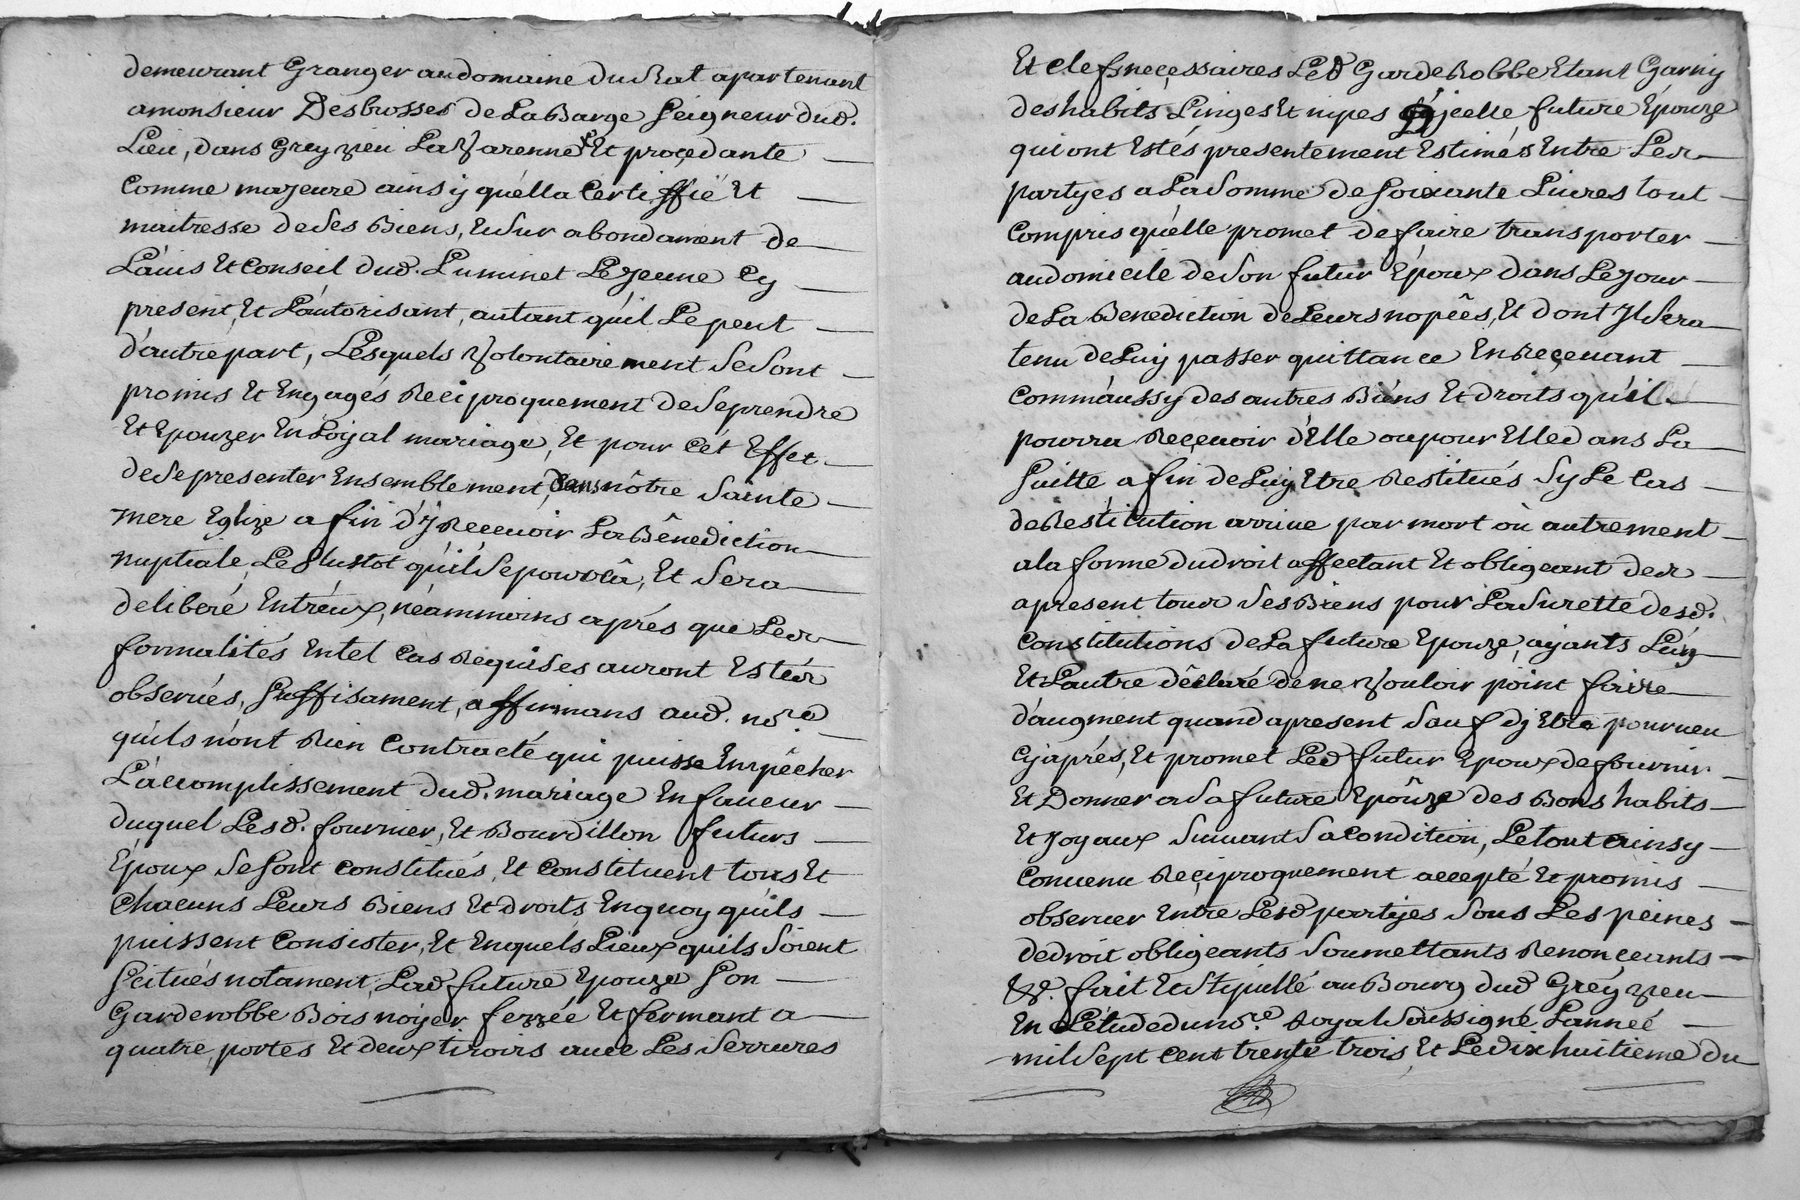 demeurant Granger au domaine du Rat apartenant
a monsieur Desbrosses de La Barge Seigneur dud.
Lieu, dans Greyzieu La Varenne Et procedante
Comme majeure ainsy qu'ella Certiffié Et
maitresse de Ses Biens, Et Sur abondament de
L'auis Et Conseil dud. Luminet Le Jeune Cy
present, Et L'autorisant, autant qu'il Le peut
d'autre part, Lesquels Volontairement Se Sont
promis Et Engagés Reciproquement de Se prendre
Et Epouzer En Loÿal mariage, Et pour Cét Effet
de Se presenter Ensemblement, Dans nôtre Sainte
mere Eglize a fin d'Y Receuoir La Bênediction
nuptiale Le Plustot qu'il Se pourrâ, Et Sera
deliberé Entréux, néammoins aprés que Les
formalités En tel Cas Requises auront Estés
obserués, Suffisament, affirmans aud. nore
qu'ils n'ont Rien Contracté qui puisse Empêcher
L'accomplissement dud. mariage En faueur
duquel Lesd. fournier, Et Bourdillon futurs
Époux Se Sont Constitués, Et Constituent tous Et
Chacuns Leurs Biens Et droits En quoy qu'ils
puissent Consister, Et En quels Lieux quils Soient
Scitués notament, Lad future Epouze Son
Garderobbe Bois noyer ferrée Et fermant a
quatre portes Et deux tiroirs auec Les Serrures
Et clefs necessaires Led Garde Robbe Etant Garny
des habits, Linges Et nipes D'jcelle future Epouze
qui ont Estés presentement Estimés Entre Les
partyes a La Somme de Soixante Liures tout
Compris qu'élle promet de faire transporter
au domicile de Son futur Époux dans Le Jour
de La Benediction de Leurs nopçês, Et dont Jl Sera
tenu de Luy passer quittance En Reçeuant
Comm'áussy des autres Biéns Et droits qu'il
pourra Reçeuoir d'Elle ou pour Elle dans La
Suitte a fin de Luy Etre Restitués Sy Le Cas
de Restitution arriue par mort où autrement
a la forme du droit affectant Et obligeant des
a present tous Ses Biens pour La Surette desd.
Constitutions de La future Epouze, ayants L'un
Et L'autre déclaré de ne Vouloir point faire
d'augment quand a present Sauf dy Etre pourueu
Cy aprés, Et promet Led futur Epoux de fournir
Et Donner a Sa future Epôuze des Bons habits
Et Joyaux Suiuant Sa Condition, Le tout ainsy
Conuenu Reçiproquement accepté Et promis
obseruer Entre Lesd partyes Sous Les peines
de droit obligeants Soumettants Renonceants
&c. fait Et Stipullé au Bourg dud Greyzieu
En L'étude du nore Royal Soussigné L'anneé
mil Sept Cent trente trois, Et Le dix huitieme du